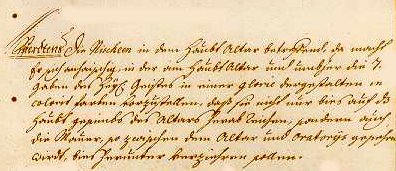 Viertens Die Nischen in dem Haubt Altar betrefend, da macht
er sich anheischig, in der am Haubt Altar und umbher die 7.
Gaben des Heyl. Geistes in einer glorie dergestalten in
colorit farben vorzustellen, daß sie nicht nur bies auf das
Haubt gesimbs des Altars herab reichen, sondern auch
die Mauer, so zwischen dem Altar und Oratoryß gesehen
wirdt, bies herunter verziehren sollen.